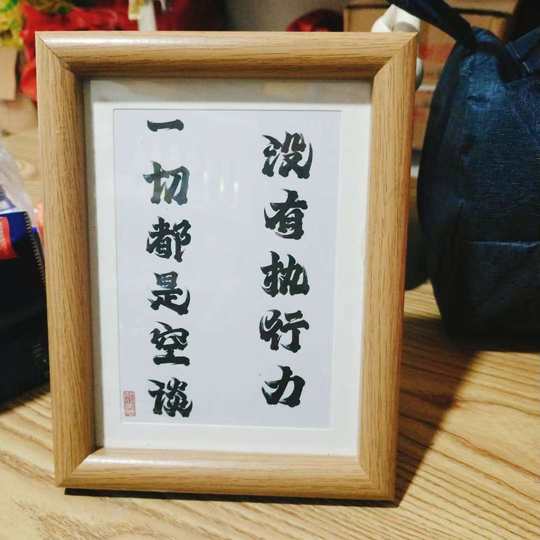 没有执行力
一切都是空谈